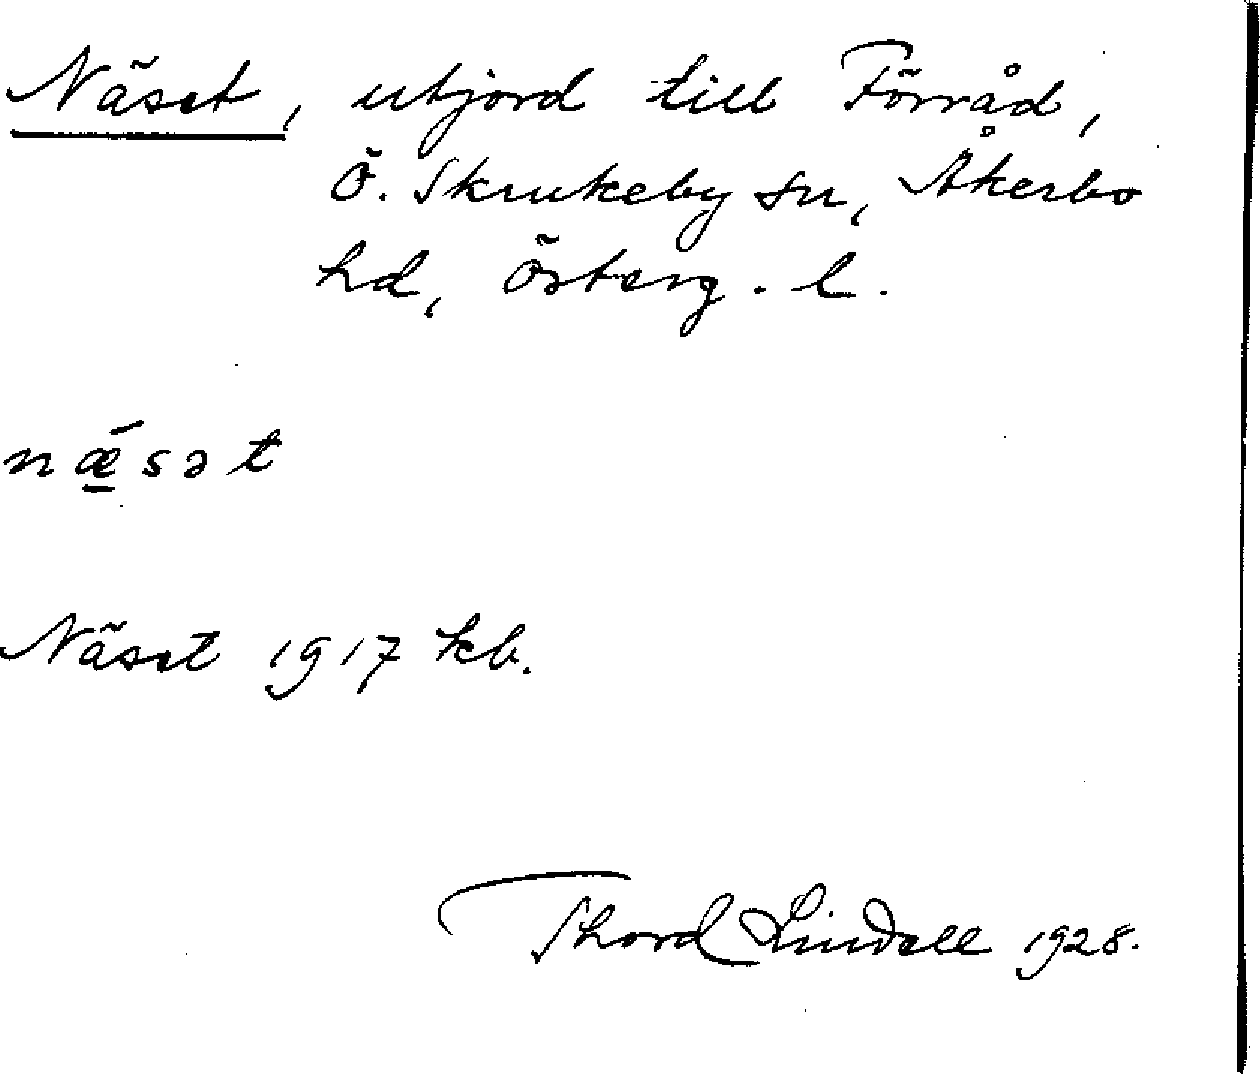 Näset, utjord till Förråd,
Ö. Skrukeby sn, Åkerbo
hd, Österg. l.
nǽ̱sət
Näset 1917 kb.
Thord Lindell 1928.